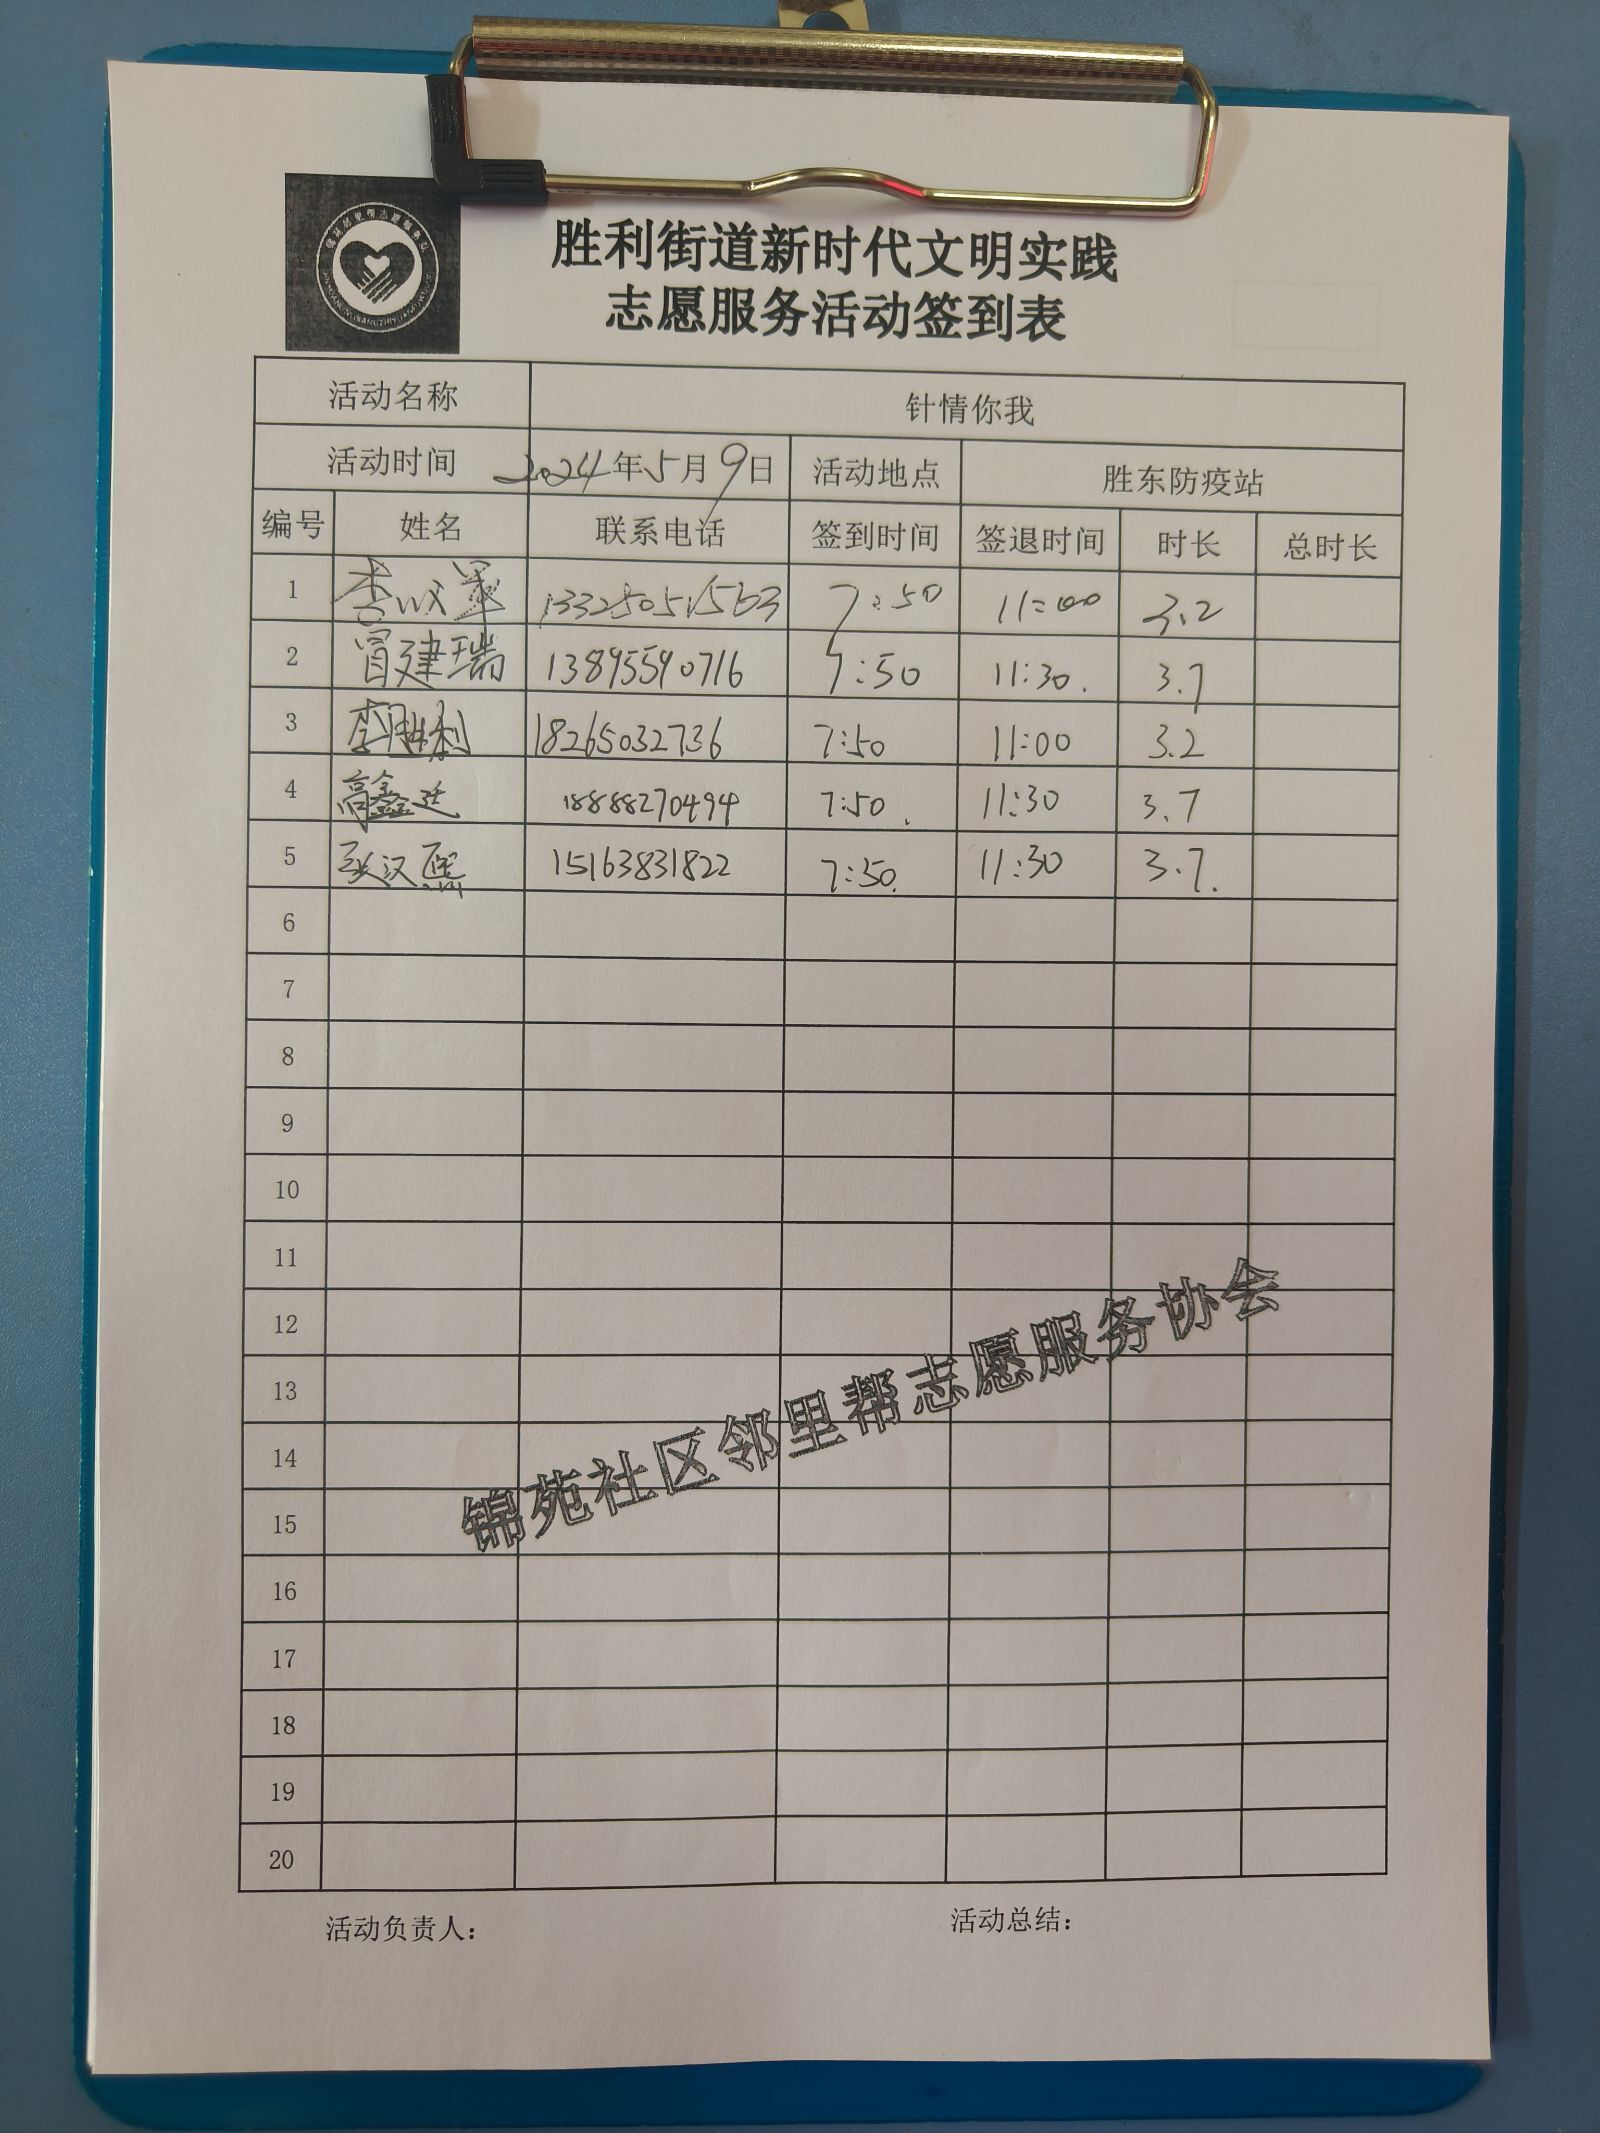 胜利街道新时代文明实践
志愿服务活动签到表
活动名称 针情你我
活动时间 2024年5月9日 活动地点 胜东防疫站
编号 姓名 联系电话 签到时间 签退时间 时长 总时长
1 13325051563 7:50 11:00 3.2
2 冒建瑞 13895590716 7:50 11:30. 3.7
3 李胜利 18265032736 7:50 11:00 3.2
4 高鑫廷 18888270494 7:50. 11:30 3.7
5 15163831822 7:50. 11:30 3.7.
6
7
8
9
10
11
12
13
14
15
16
17
18
19
20
锦苑社区邻里帮志愿服务协会
活动负责人: 活动总结: